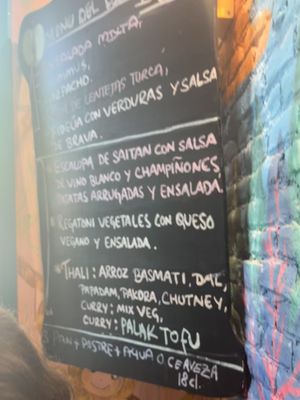 MENU DEL
ENSALADA MIXTA,
HUMMUS,
GAZPACHO.
DE LENTEJAS TURCA,
FIDEUÁ CON VERDURAS Y SALSA
DE BRAVA.
* ESCALOPA DE SAITAN CON SALSA
DE VINO BLANCO Y CHAMPIÑONES,
PATATAS ARRUGADAS Y ENSALADA.
* REGATONI VEGETALES CON QUESO
VEGANO Y ENSALADA.
* THALI: ARROZ BASMATI, DAL,
PAPADAM, PAKORA, CHUTNEY,
CURRY: MIX VEG,
CURRY: PALAK TOFU
PAN + POSTRE + AGUA O CERVEZA
18cl.